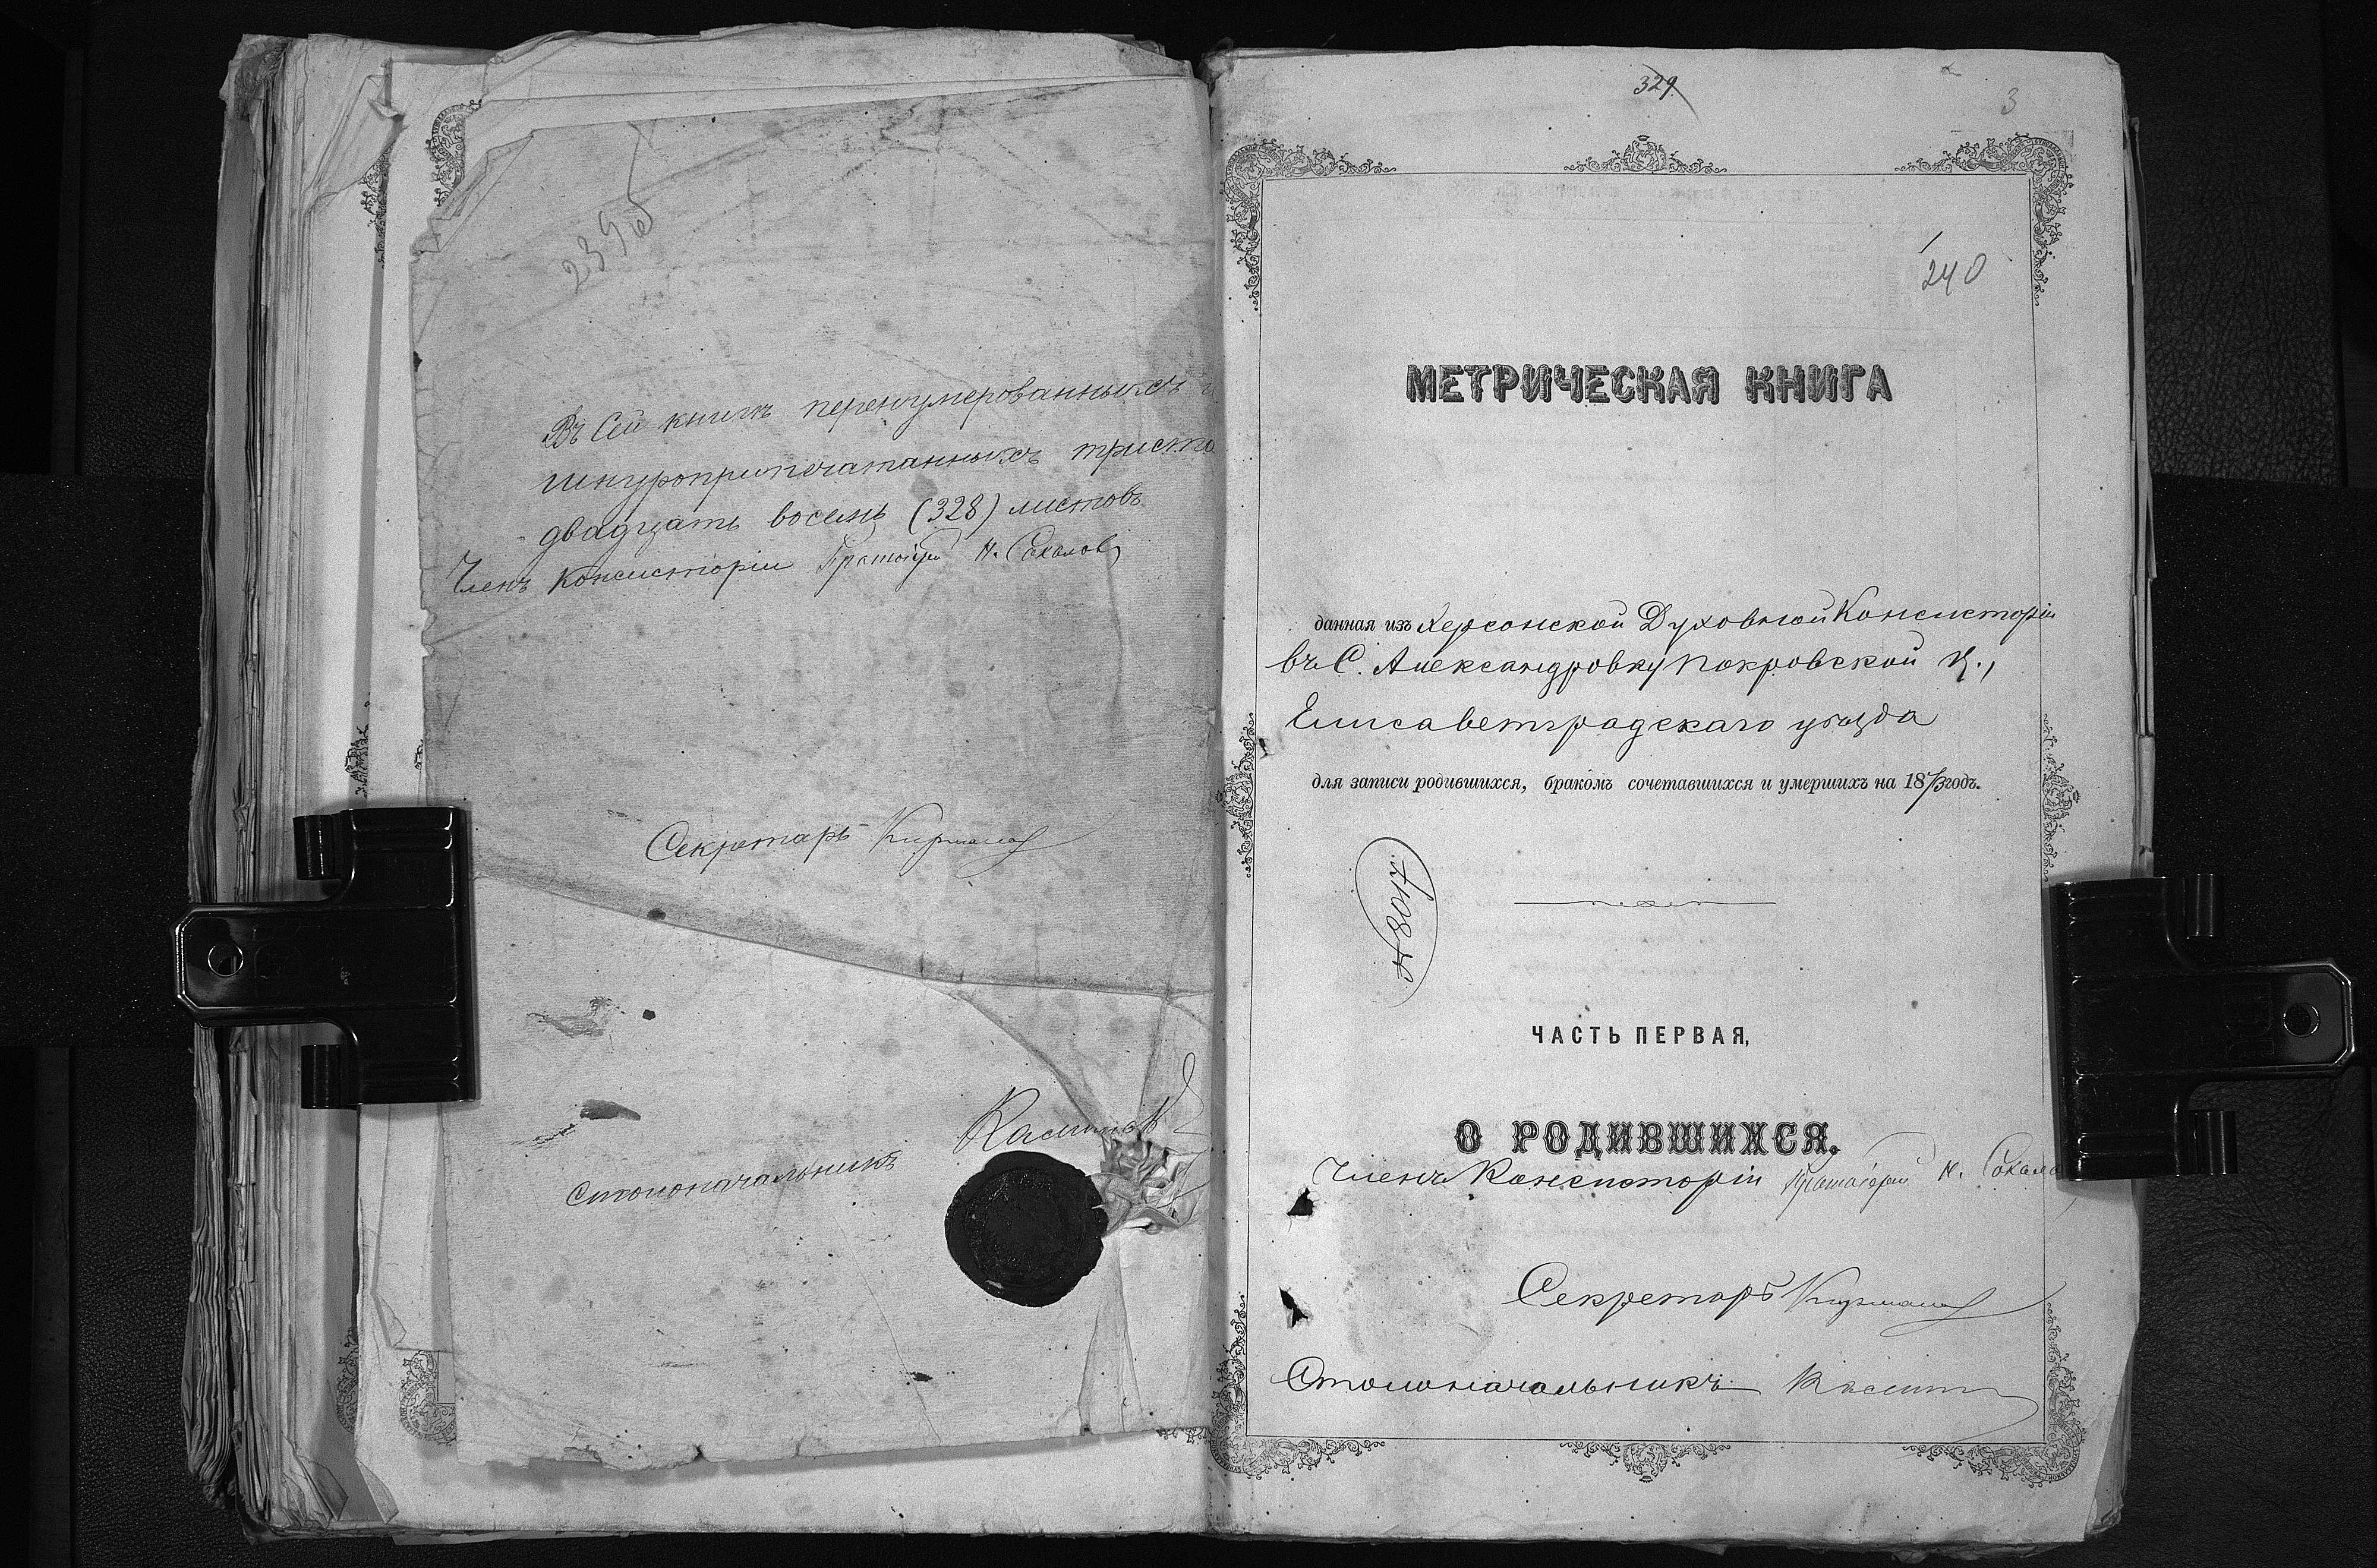 239об
Въ сей книгѣ перенумерованныхъ и
шнуроприпечатанныхъ триста
двадцать восемь (328) листовъ
Членъ Консисторіи Протоіерей Н. Соколовъ
Секретарь
Столоначальникъ
329
3
240
МЕТРИЧЕСКАЯ КНИГА
данная изъ Херсонской Духовной Консисторіи
въ С. Александровку Покровской ц.,
Елисаветградскаго уѣзда
для записи родившихся, бракомъ сочетавшихся и умершихъ на 1873 годъ.
№ 8017
ЧАСТЬ ПЕРВАЯ,
О РОДИВШИХСЯ.
Членъ Консисторіи Протоіерей Н. Соколо
Секретарь
Столоначальникъ